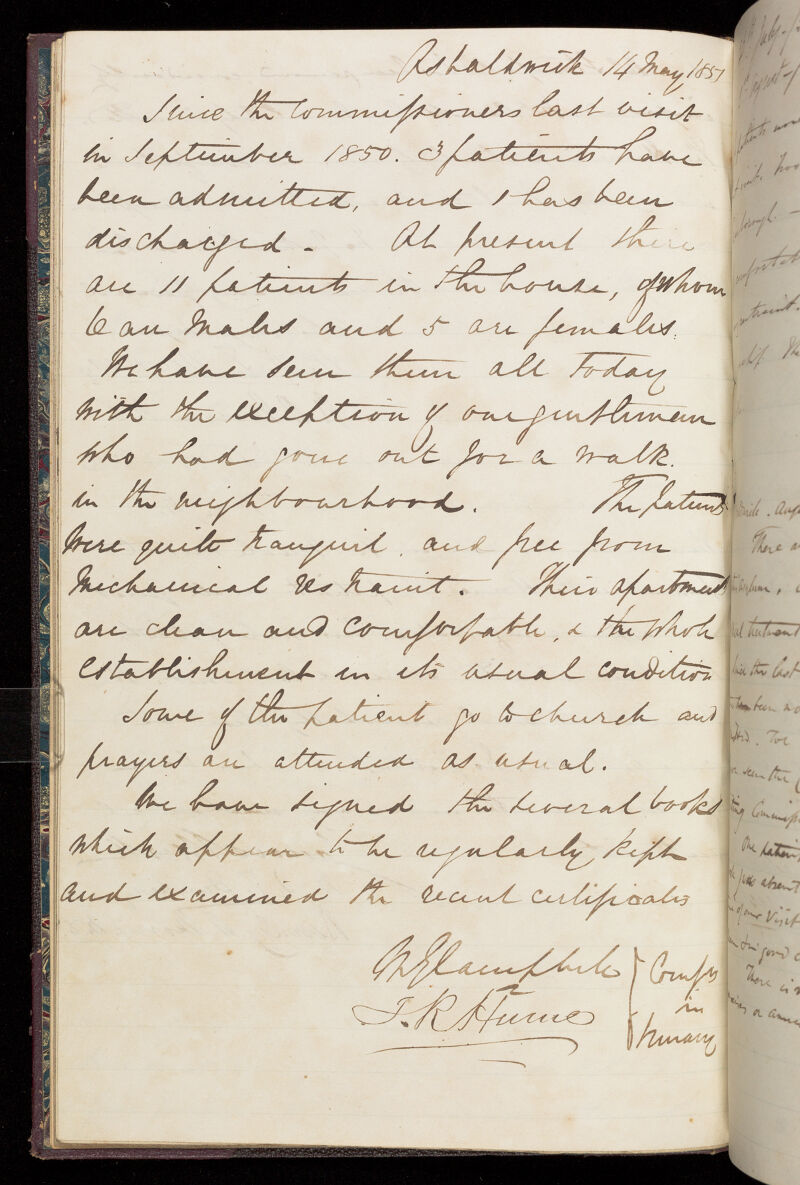 Osbaldwick 14 May 1851
Since the Commissioners last visit
in September 1850. 3 patients have
been admitted, and 1 has been
discharged - At present there
are 11 patients in the house, of whom
6 are Males and 5 are females.
We have seen them all today
with the exception of one gentleman
who had gone out for a walk
in the neighbourhood. The patients
were quite tranquil, and free from
Mechanical restraint. Their apartments
are clean and comfortable, & the whole
establishment in its usual condition
Some of the patient go to church and
prayers are attended as usual.
We have signed the several books
which appear to be regularly kept
and examined the recent certificates
W G Campbell } Comrs
J. R. Hume } in
Lunacy
There
the last
been
seen the
One patient
absent
of our Visit
good
There is
or